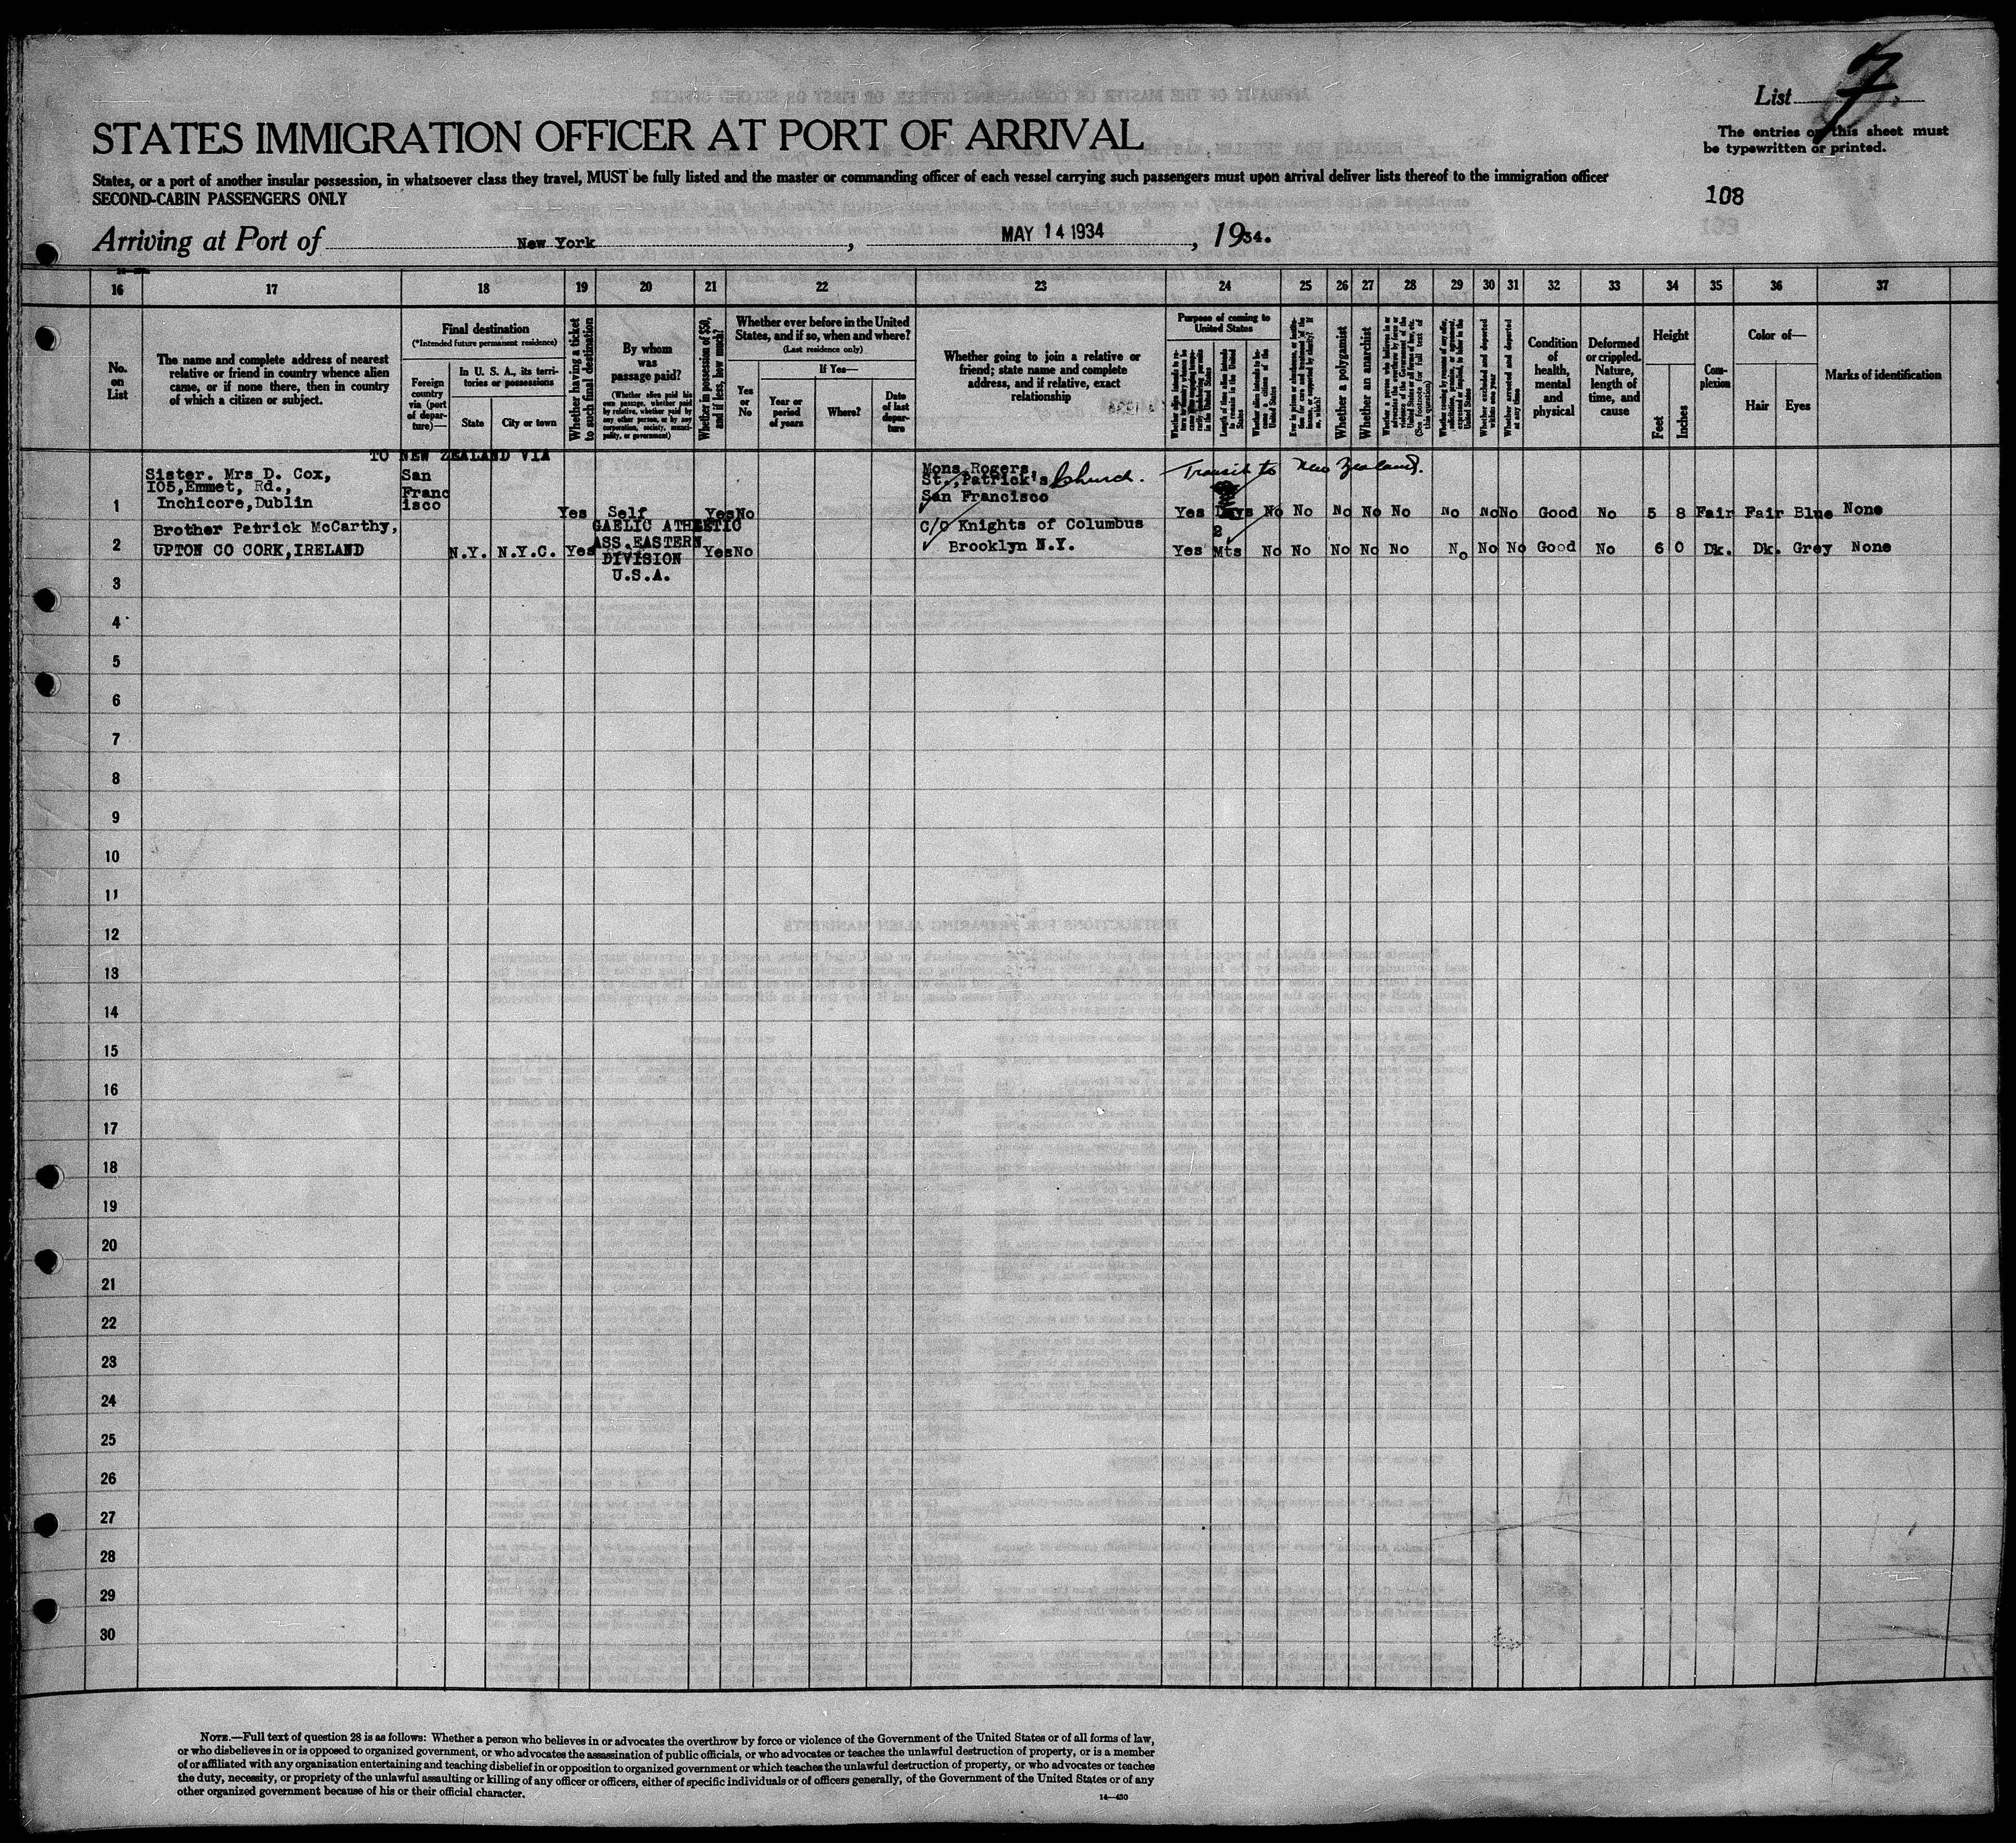 List 7.
STATES IMMIGRATION OFFICER AT PORT OF ARRIVAL
The entries on this sheet must
be typewritten or printed.
States, or a port of another insular possession, in whatsoever class they travel, MUST be fully listed and the master or commanding officer of each vessel carrying such passengers must upon arrival deliver lists thereof to the immigration officer
SECOND-CABIN PASSENGERS ONLY
108
Arriving at Port of New York, MAY 14 1934, 1934.
16 17 18 19 20 21 22 23 24 25 26 27 28 29 30 31 32 33 34 35 36 37
No.
on
List
The name and complete address of nearest
relative or friend in country whence alien
came, or if none there, then in country
of which a citizen or subject.
Final destination
(*Intended future permanent residence)
Foreign
country
via (port
of depar-
ture)—
In U. S. A., its terri-
tories or possessions
State
City or town
Whether having a ticket
to such final destination
By whom
was
passage paid?
(Whether alien paid his
own passage, whether paid
by relative, whether paid by
any other person, or by any
corporation, society, munci-
pality, or government)
Whether in possession of $50,
and if less, how much?
Whether ever before in the United
States, and if so, when and where?
(Last residence only)
Yes
or
No
If Yes—
Year or
period
of years
Where?
Date
of last
depar-
ture
Whether going to join a relative or
friend; state name and complete
address, and if relative, exact
relationship
Purpose of coming to
United States
Length of time alien intends
to remain in the United
States
Whether alien intends to be-
come a citizen of the
United States
Whether a polygamist
Whether an anarchist
Whether excluded and deported
within one year
Whether arrested and deported
at any time
Condition
of
health,
mental
and
physical
Deformed
or crippled.
Nature,
length of
time, and
cause
Height
Feet
Inches
Com-
plexion
Color of—
Hair
Eyes
Marks of identification
TO NEW ZEALAND VIA
1 Sister. Mrs D. Cox,
105,Emmet, Rd.,
Inchicore,Dublin
San
Franc
isco
Yes Self Yes No
Mons Rogers,
St.,Patrick's Church.
San Francisco
Transit to New Zealand.
Yes Days No No No No No No No No Good No 5 8 Fair Fair Blue None
2 Brother Patrick McCarthy,
UPTON CO CORK,IRELAND
N.Y. N.Y.C. Yes
GAELIC ATHLETIC
ASS.EASTERN
DIVISION
U.S.A.
Yes No
C/O Knights of Columbus
Brooklyn N.Y.
Yes 2 Mts No No No No No No No No Good No 6 0 Dk. Dk. Grey None
3
4
5
6
7
8
9
10
11
12
13
14
15
16
17
18
19
20
21
22
23
24
25
26
27
28
29
30
NOTE.—Full text of question 28 is as follows: Whether a person who believes in or advocates the overthrow by force or violence of the Government of the United States or of all forms of law,
or who disbelieves in or is opposed to organized government, or who advocates the assassination of public officials, or who advocates or teaches the unlawful destruction of property, or is a member
of or affiliated with any organization entertaining and teaching disbelief in or opposition to organized government or which teaches the unlawful destruction of property, or who advocates or teaches
the duty, necessity, or propriety of the unlawful assaulting or killing of any officer or officers, either of specific individuals or of officers generally, of the Government of the United States or of any
other organized government because of his or their official character.
14—430